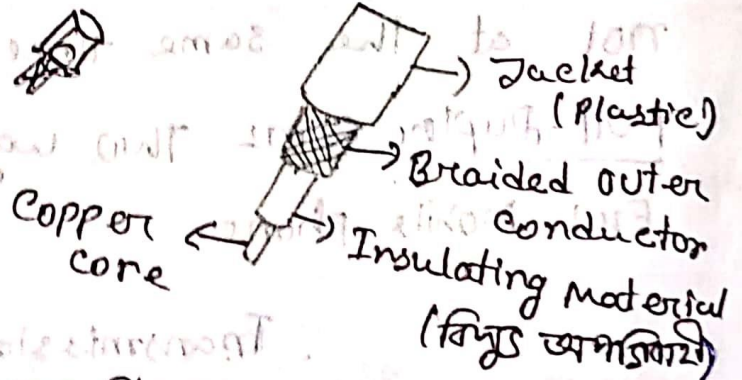 Jacket
(Plastic)
Braided outer
conductor
Copper
core
Insulating Material
(বিদ্যুত অপরিবাহী)